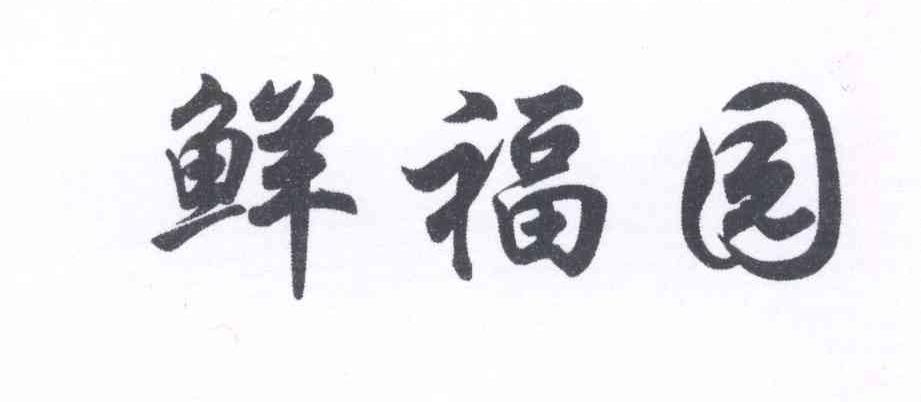 鲜福园